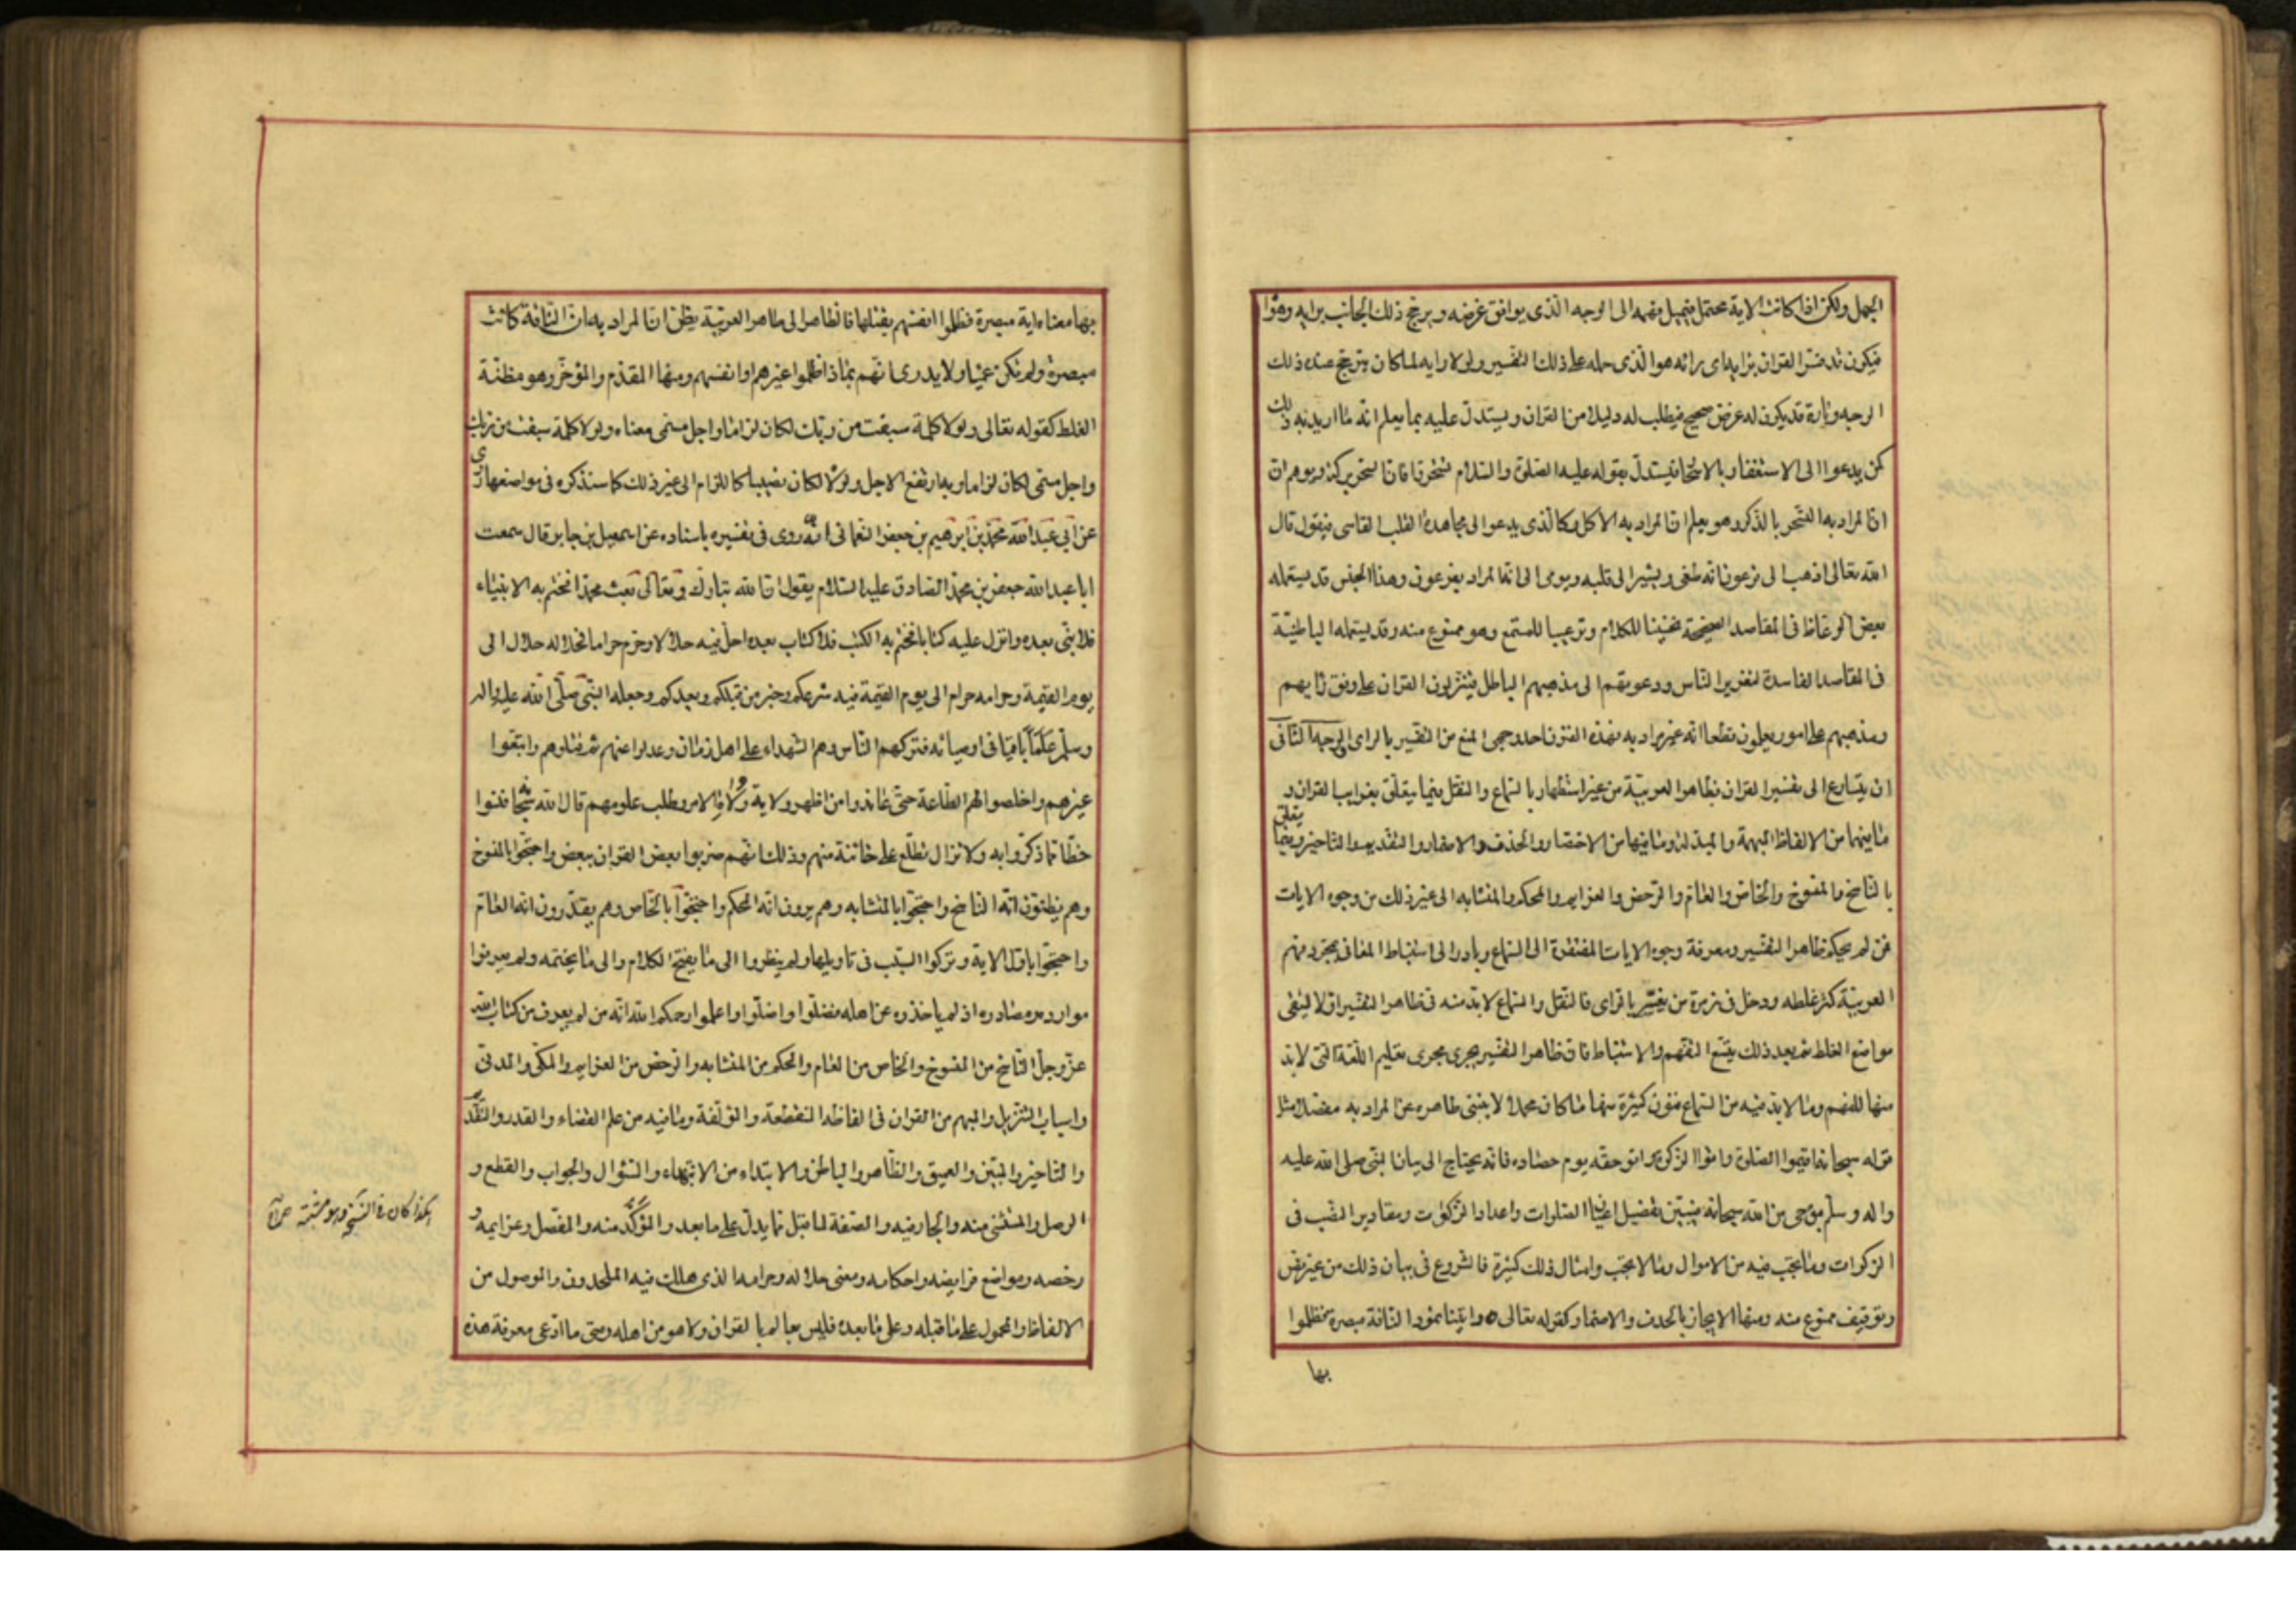 الجهل ولكن اذا كانت الاية محتملة فيميل فهمه الى الوجه الذى يوافق غرضه ويرجح ذلك الجانب برايه وهواه
فيكون قد فسر القران برايه اى رائه هو الذى حمله على ذلك التفسير ولولا رايه لما كان يترجح عنده ذلك
الوجه وتارة قد يكون له غرض صحيح فيطلب له دليلا من القران ويستدل عليه بما يعلم انه ما اريد به ذلك
كمن يدعوا الى الاستغفار بالاسحار فيستدل بقوله عليه الصلوة والسلام تسحروا فان السحور بركة ويوهم ان
ان المراد به التسحر بالذكر وهو يعلم ان المراد به الاكل وكالذى يدعوا الى مجاهدة القلب القاسى فيقول قال
الله تعالى اذهب الى فرعون انه طغى ويشير الى قلبه ويومى الى انه المراد بفرعون وهذا الجنس قد يستعمله
بعض الوعاظ فى المقاصد الصحيحة تحسينا للكلام وترغيبا للمستمع وهو ممنوع منه وقد يستعمله الباطنية
فى المقاصد الفاسدة لتغرير الناس ودعوتهم الى مذهبهم الباطل فينزلون القران على وفق رايهم
ومذهبهم على امور يعلمون قطعا انه غير مراد به فهذه الفنون احد وجهى المنع من التفسير بالراى الوجه الثانى
ان يتسارع الى تفسير القران بظاهر العربية من غير استظهار بالسماع والنقل فيما يتعلق بغرايب القران و
ما فيها من الالفاظ المبهمة والمبدلة وما فيها من الاختصار والحذف والاضمار والتقديم والتاخير وفيما يتعلق
بالناسخ والمنسوخ والخاص والعام والرخص والعزايم والمحكم والمتشابه الى غير ذلك من وجوه الايات
فمن لم يحكم ظاهر التفسير ومعرفة وجوه الايات المفتقرة الى السماع وبادر الى استنباط المعانى بمجرد فهم
العربية كثر غلطه ودخل فى زمرة من يفسر بالراى فالنقل والسماع لابد منه فى ظاهر التفسير اولا ليتقى
مواضع الغلط ثم بعد ذلك يتسع التفهم والاستنباط فان ظاهر التفسير يجرى مجرى تعليم اللغة التى لابد
منها للفهم وما لابد فيه من السماع فنون كثيرة منها ما كان مجملا لا ينبئ ظاهره عن المراد به مفصلا مثل
قوله سبحانه اقيموا الصلوة واتوا الزكوة واتوا حقه يوم حصاده فانه يحتاج الى بيان النبى صلى الله عليه
واله وسلم بوحى من الله سبحانه فيبين تفصيل اعيان الصلوات واعداد الركعات ومقادير النصب فى
الزكوات وما تجب فيه من الاموال وما لا تجب وامثال ذلك كثيرة فالشروع فى بيان ذلك من غير نص
وتوقيف ممنوع منه ومنها الايجاز بالحذف والاضمار كقوله تعالى واتينا ثمود الناقة مبصرة فظلموا
بها
بها معناه اية مبصرة فظلموا انفسهم بقتلها فالناظر الى ظاهر العربية يظن ان المراد به ان الناقة كانت
مبصرة ولم تكن عميا ولا يدرى انهم بماذا ظلموا غيرهم او انفسهم ومنها المقدم والمؤخر وهو مظنة
الغلط كقوله تعالى ولولا كلمة سبقت من ربك لكان لزاما واجل مسمى معناه ولولا كلمة سبقت من ربك
واجل مسمى لكان لزاما وبه ارتفع الاجل ولولاه لكان نصيبا كاللزام الى غير ذلك كما ستذكره فى مواضعها
عن ابى عبد الله محمد بن ابرهيم بن جعفر النعمانى انه روى فى تفسيره باسناده عن اسمعيل بن جابر قال سمعت
ابا عبد الله جعفر بن محمد الصادق عليه السلام يقول ان الله تبارك وتعالى بعث محمدا فختم به الانبياء
فلا نبى بعده وانزل عليه كتابا فختم به الكتب فلا كتاب بعده احل فيه حلالا وحرم حراما فحلاله حلال الى
يوم القيمة وحرامه حرام الى يوم القيمة فيه شرعكم وخبر من قبلكم وبعدكم وجعله النبى صلى الله عليه واله
وسلم علما باقيا فى اوصيائه فتركهم الناس وهم الشهداء على اهل زمان وعدلوا عنهم ثم قتلوهم واتبعوا
غيرهم واخلصوا لهم الطاعة حتى عاندوا من اظهر ولاية ولاة الامر وطلب علومهم قال الله فنسوا
حظا مما ذكروا به ولا تزال تطلع على خائنة منهم وذلك انهم ضربوا بعض القران ببعض واحتجوا بالمنسوخ
وهم يظنون انه الناسخ واحتجوا بالمتشابه وهم يرون انه المحكم واحتجوا بالخاص وهم يقدرون انه العام
واحتجوا باول الاية وتركوا السبب فى تاويلها ولم ينظروا الى ما يفتح الكلام والى ما يختمه ولم يعرفوا
موارده ومصادره اذ لم ياخذوه عن اهله فضلوا واضلوا واعلموا رحمكم الله انه من لم يعرف من كتاب الله
عز وجل الناسخ من المنسوخ والخاص من العام والمحكم من المتشابه والرخص من العزايم والمكى والمدنى
واسباب التنزيل والمبهم من القران فى الفاظه المنقطعة والمؤلفة وما فيه من علم القضاء والقدر والتقديم
والتاخير والمبين والعميق والظاهر والباطن والابتداء من الانتهاء والسؤال والجواب والقطع و
الوصل والمستثنى منه والجارفيه والصفة لما قبل مما يدل على ما بعد والمؤكد منه والمفصل وعزايمه و
رخصه ومواضع فرايضه واحكامه ومعنى حلاله وحرامه الذى هلك فيه الملحدون والموصول من
الالفاظ والمحمول على ما قبله وعلى ما بعده فليس بعالم بالقران ولا هو من اهله ومتى ما ادعى معرفة هذه
هكذا كان فى النسخ